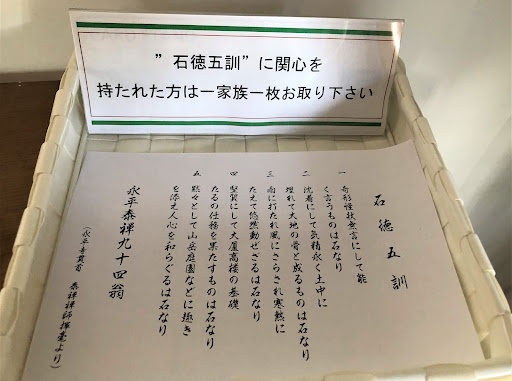 ”石徳五訓”に関心を
持たれた方は一家族一枚お取り下さい
石徳五訓
一 奇形怪状無言にして能
く言うものは石なり
二 沈着にして気精永く土中に
埋れて大地の骨と成るものは石なり
三 雨に打たれ風にさらされ寒熱に
たえて悠然動ぜざるは石なり
四 堅質にして大厦高楼の基礎
たるの任務を果たすものは石なり
五 黙々として山岳庭園などに趣き
を添え人心を和らぐるは石なり
永平泰禅九十四翁
(永平寺貫首 泰禅禅師揮毫より)